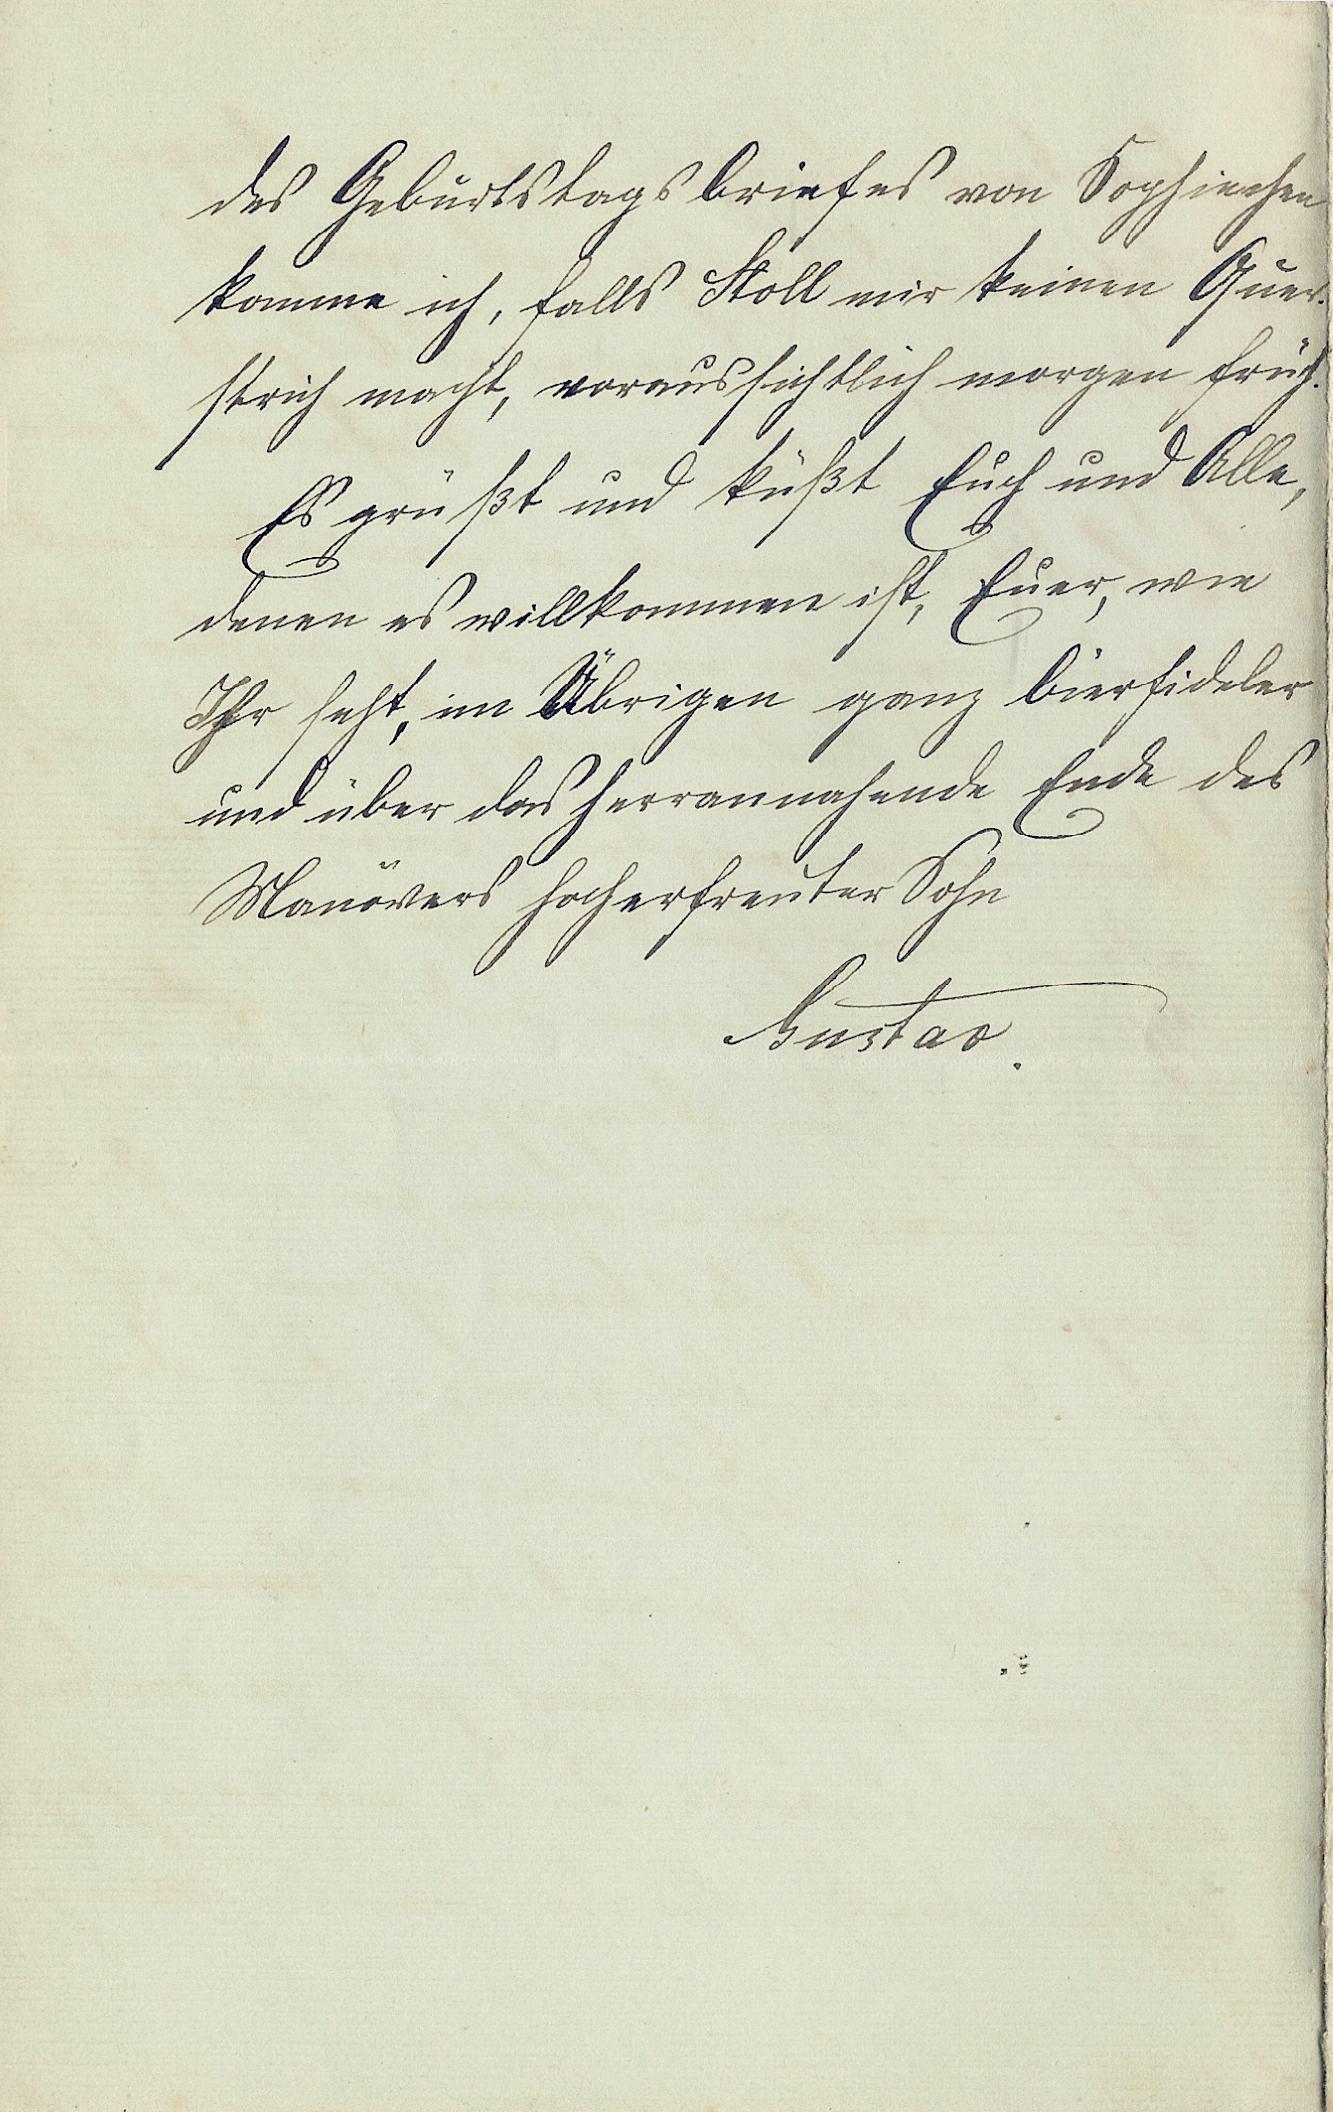 des Geburtstagsbriefes von Sophiechen
komme ich, falls Stoll mir keinen Quer-
strich macht, voraussichtlich morgen früh.
Es grüßt und küßt Euch und Alle,
denen es willkommen ist, Euer, wie
Ihr seht, im Übrigen ganz bierfideler
und über das herrannahende Ende des
Manövers hocherfreuter Sohn
Gustav.